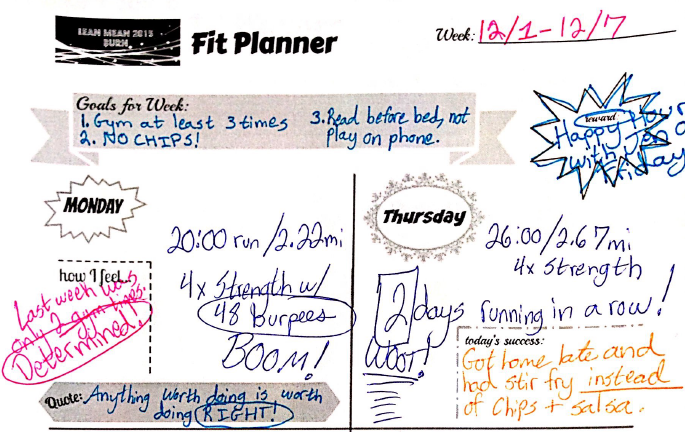 LEAN MEAN 2015
BURN
Fit Planner
Week: 12/1-12/7
Goals for Week:
1. Gym at least 3 times
2. NO CHIPS!
3. Read before bed, not
play on phone.
reward
Happy Hour
with Jen on
Friday
MONDAY
20:00 run/2.22mi
4x Strength w/
48 Burpees
BOOM!
how I feel
Last week was
only 2 gym times.
Determined!
Quote: Anything worth doing is worth
doing RIGHT!
Thursday
26:00/2.67mi
4x Strength
2 days running in a row!
WOOT!
today's success:
Got home late and
had stir fry instead
of chips + salsa.